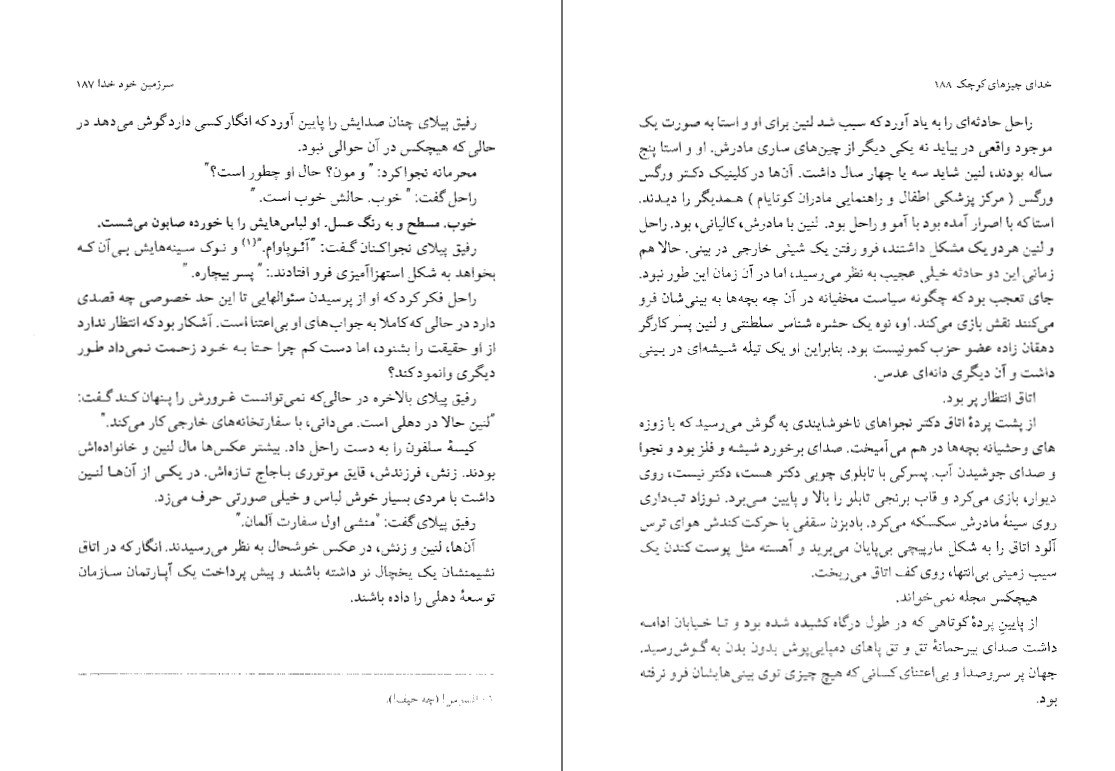 سرزمین خود خدا ۱۸۷
رفیق پیلای چنان صدایش را پایین آورد که انگار کسی دارد گوش می‌دهد در
حالی که هیچکس در آن حوالی نبود.
محرمانه نجوا کرد: " و مون؟ حال او چطور است؟"
راحل گفت: " خوب. حالش خوب است. "
خوب. مسطح و به رنگ عسل. او لباس‌هایش را با خورده صابون می‌شست.
رفیق پیلای نجواکنان گفت: "آئوپاوام."(۱) و نوک سینه‌هایش بی‌آن که
بخواهد به شکل استهزاآمیزی فرو افتادند.: " پسر بیچاره. "
راحل فکر کرد که او از پرسیدن سئوالهایی تا این حد خصوصی چه قصدی
دارد در حالی که کاملا به جواب‌های او بی‌اعتنا است. آشکار بود که انتظار ندارد
از او حقیقت را بشنود، اما دست کم چرا حتا به خود زحمت نمی‌داد طور
دیگری وانمود کند؟
رفیق پیلای بالاخره در حالی‌که نمی‌توانست غرورش را پنهان کند گفت:
"لنین حالا در دهلی است. می‌دانی، با سفارتخانه‌های خارجی کار می‌کند."
کیسهٔ سلفون را به دست راحل داد. بیشتر عکس‌ها مال لنین و خانواده‌اش
بودند. زنش، فرزندش، قایق موتوری باجاج تازه‌اش. در یکی از آن‌ها لنین
داشت با مردی بسیار خوش لباس و خیلی صورتی حرف می‌زد.
رفیق پیلای گفت: "منشی اول سفارت آلمان."
آن‌ها، لنین و زنش، در عکس خوشحال به نظر می‌رسیدند. انگار که در اتاق
نشیمنشان یک یخچال نو داشته باشند و پیش پرداخت یک آپارتمان سازمان
توسعهٔ دهلی را داده باشند.
۱- افسوس! (چه حیف!).
خدای چیزهای کوچک ۱۸۸
راحل حادثه‌ای را به یاد آورد که سبب شد لنین برای او و استا به صورت یک
موجود واقعی در بیاید نه یکی دیگر از چین‌های ساری مادرش. او و استا پنج
ساله بودند، لنین شاید سه یا چهار سال داشت. آن‌ها در کلینیک دکتر ورگس
ورگس ( مرکز پزشکی اطفال و راهنمایی مادران کوتایام ) همدیگر را دیدند.
استا که با اصرار آمده بود با آمو و راحل بود. لنین با مادرش، کالیانی، بود. راحل
و لنین هر دو یک مشکل داشتند، فرو رفتن یک شیئی خارجی در بینی. حالا هم
زمانی این دو حادثه خیلی عجیب به نظر می‌رسید، اما در آن زمان این طور نبود.
جای تعجب بود که چگونه سیاست مخفیانه در آن چه بچه‌ها به بینی‌شان فرو
می‌کنند نقش بازی می‌کند. او، نوه یک حشره شناس سلطنتی و لنین پسر کارگر
دهقان زاده عضو حزب کمونیست بود. بنابراین او یک تیله شیشه‌ای در بینی
داشت و آن دیگری دانه‌ای عدس.
اتاق انتظار پر بود.
از پشت پردهٔ اتاق دکتر نجواهای ناخوشایندی به گوش می‌رسید که با زوزه
های وحشیانه بچه‌ها در هم می‌آمیخت. صدای برخورد شیشه و فلز بود و نجوا
و صدای جوشیدن آب. پسرکی با تابلوی چوبی دکتر هست، دکتر نیست، روی
دیوار، بازی می‌کرد و قاب برنجی تابلو را بالا و پایین می‌برد. نوزاد تب‌داری
روی سینهٔ مادرش سکسکه می‌کرد. بادبزن سقفی با حرکت کندش هوای ترس
آلود اتاق را به شکل مارپیچی بی‌پایان می‌برید و آهسته مثل پوست کندن یک
سیب زمینی بی‌انتها، روی کف اتاق می‌ریخت.
هیچکس مجله نمی‌خواند.
از پایین پردهٔ کوتاهی که در طول درگاه کشیده شده بود و تا خیابان ادامه
داشت صدای بیرحمانهٔ تق و تق پاهای دمپایی‌پوش بدون بدن به گوش رسید.
جهان پر سروصدا و بی‌اعتنای کسانی که هیچ چیزی توی بینی‌هایشان فرو نرفته
بود.